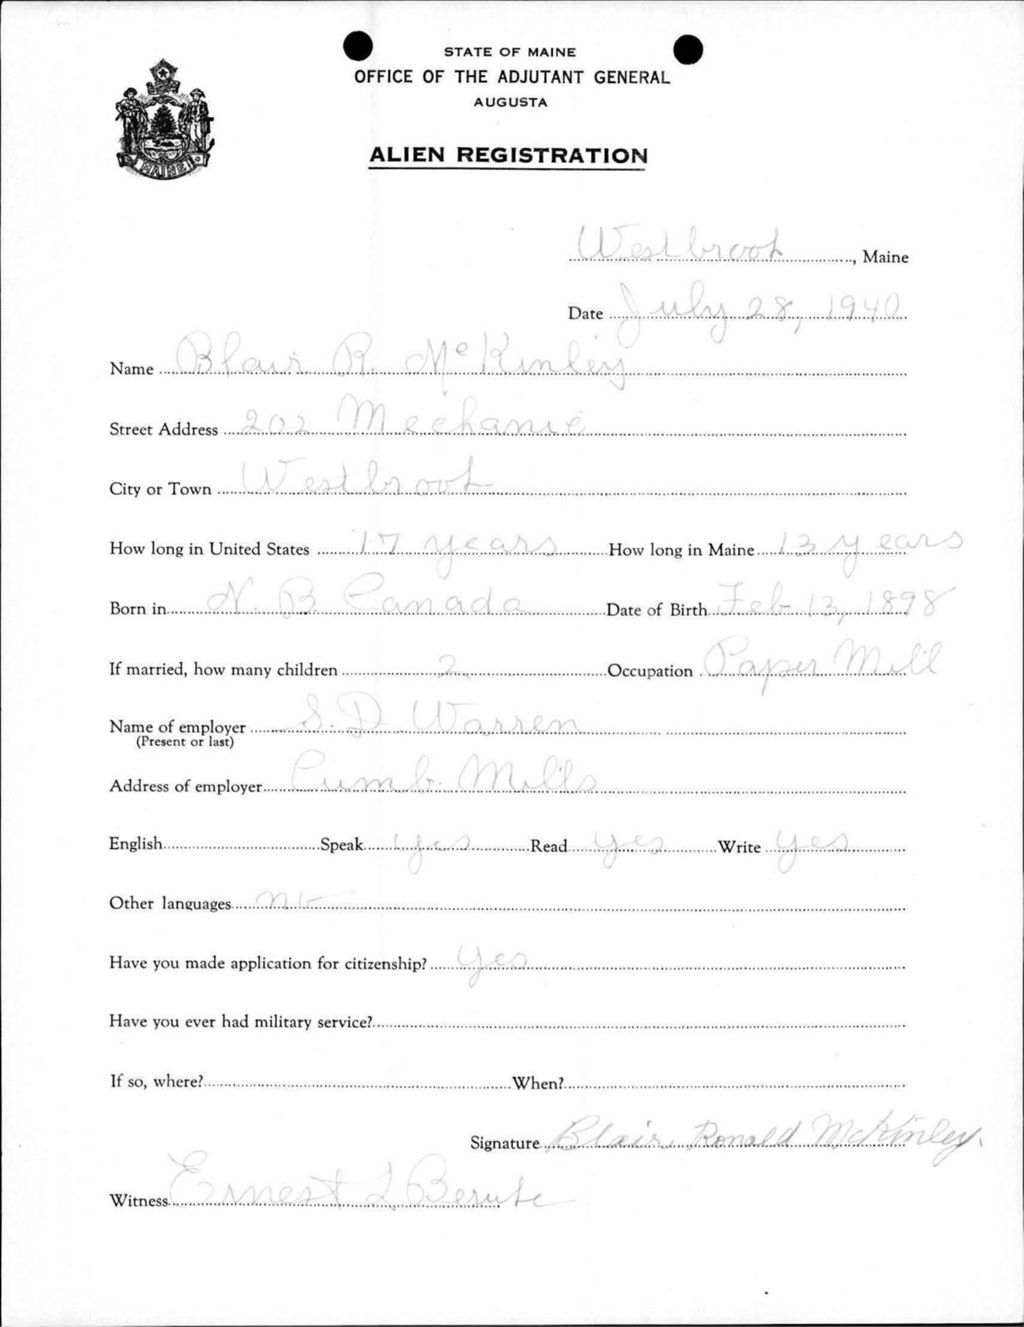 STATE OF MAINE
OFFICE OF THE ADJUTANT GENERAL
AUGUSTA
ALIEN REGISTRATION
MAINE
Westbrook, Maine
Date July 28, 1940
Name Blair R. McKinley
Street Address 202 Mechanic
City or Town Westbrook
How long in United States 17 years How long in Maine 13 years
Born in N. B Canada Date of Birth Feb 13, 1898
If married, how many children 2 Occupation Paper Mill
Name of employer S. D. Warren
(Present or last)
Address of employer Cumb. Mills
English Speak yes Read yes Write yes
Other languages no
Have you made application for citizenship? yes
Have you ever had military service?
If so, where? When?
Signature Blair Ronald McKinley.
Witness Ernest L Berube